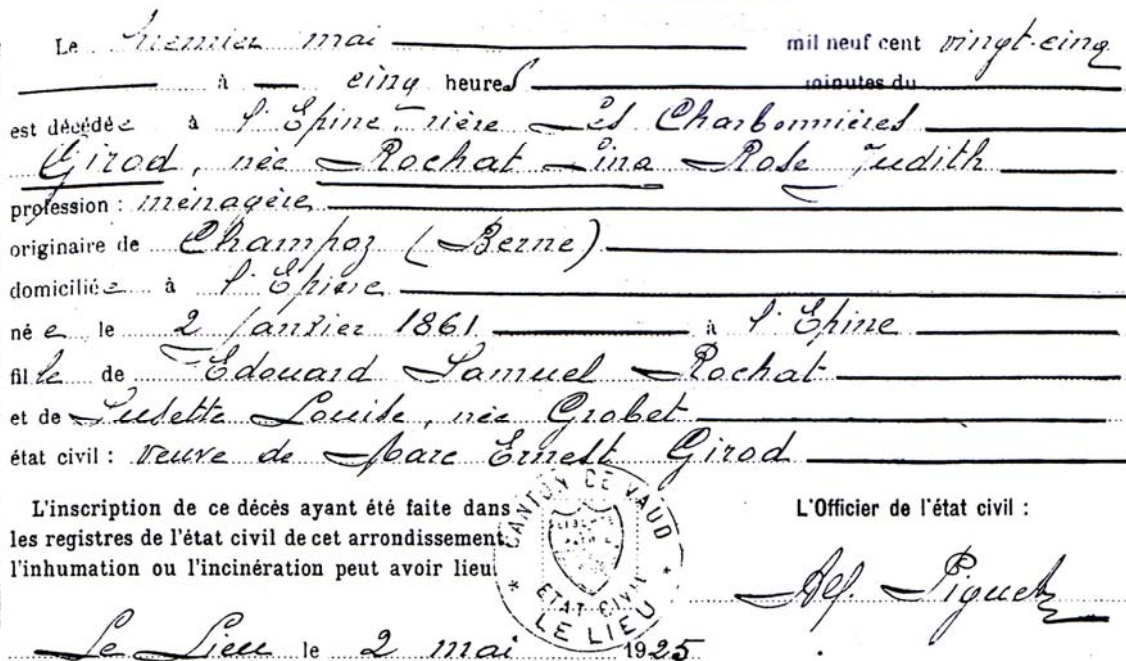 Le premier mai mil neuf cent vingt-cinq
à cinq heures minutes du
est décédée à l'Epine rière Les Charbonnières
Girod, née Rochat Lina Rose Judith
profession : ménagère
originaire de Champoz (Berne)
domiciliée à l'Epine
née le 2 janvier 1861 à l'Epine
fille de Edouard Samuel Rochat
et de Susette Louise, née Grobet
état civil : veuve de Marc Ernest Girod
L'inscription de ce décès ayant été faite dans
les registres de l'état civil de cet arrondissement,
l'inhumation ou l'incinération peut avoir lieu
L'Officier de l'état civil :
Alf. Piguet
CANTON DE VAUD
LIBERTÉ
* ETAT CIVIL *
LE LIEU
Le Lieu le 2 mai 1925